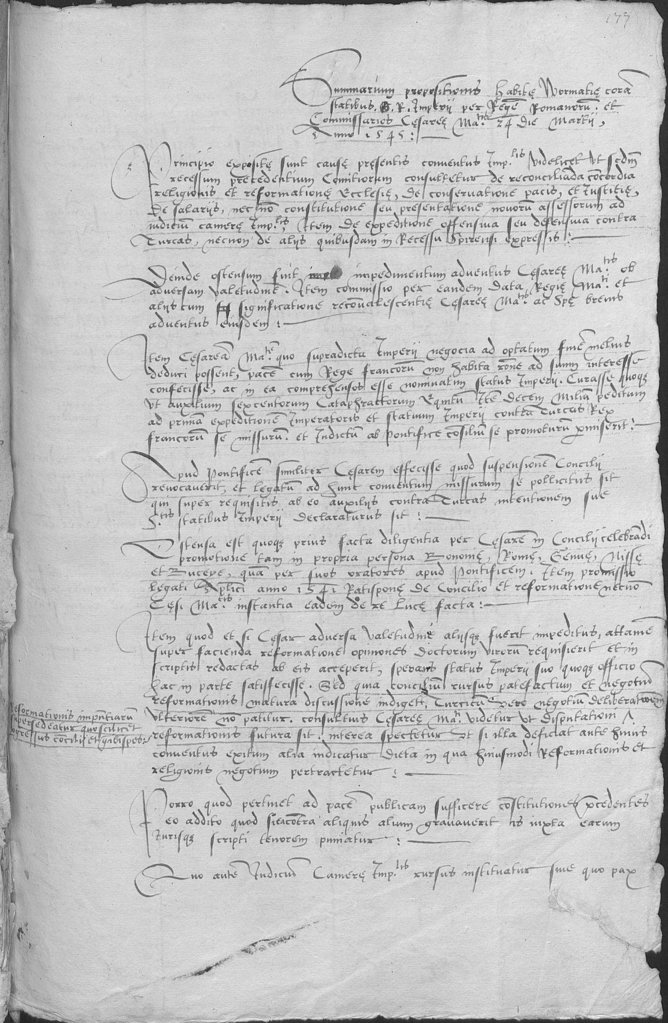 177
Summarium propositionis habitę Wormatię corā
statibus S. R. Imperij per Regē Romanorū. et
Commissarios Cęsareę Ma.tis 24 die Martij,
Anno 1545:
Principio expositę sunt causę pręsentis conventus Imp.lis videlicet ut scdm
recessum pręcedentium Comitiorum consultetur de reconcilianda cōcordia
religionis et reformationę Ecclesię, De conservatione pacis, et Justitię,
De salarijs, necnō constitutione seu pręsentatione novorū assessorum ad
iudicium camerę Imp.lis Item de expeditione offensiva seu defensiva contra
Turcas, necnon de alijs quibusdam in Recessu Spirensi expressis:
Deinde ostensum fuit impedimentum adventus Cęsareę Ma.tis ob
adversam valetudinē. Item commissio per eandem data Regię Ma.ti et
alijs cum significatione reconvalescentię Cęsareę Ma.tis ac spę brevis
adventus eiusdem:
Item Cęsareā Ma.tē quo supradicta Imperij negocia ad optatum finē melius
deduci possent, pacē cum Rege francorū non habita rōne ad suum interesse
confecisse, ac in ea comprehensos esse nominatim status Imperij. Curasse quoq;
ut auxilium sexcentorum Cataphractorum Equitū Itē Decem Miliū peditum
ad primā expeditionem Imperatoris et statuum Imperij contra Turcas Rex
francorū se missurū. et Indictū ab pontifice consiliū se promoturū promiserit:
Apud Pontificē similiter Cęsarem effecisse quod suspensionem Concilij
revocaverit, et legatū ad hunc conventum missurum se pollicitus sit
qui super requisitis ab eo auxilijs contra Turcas intentionem suę
S.tis statibus Imperij declaraturus sit:
Ostensa est quoq; prius facta diligentia per Cęsarē in Concilij celebrādi
promotione tam in propria persona Bononię, Romę, Genuę, Nissę
et Bucepę, quā per suos oratores apud Pontificem. Item promissio
legati Aplici anno 1541 Ratisponę de Concilio et reformatione necnō
Cęsę Ma.tis instantia eadem de re Lucę facta:
Item quod et si Cęsar adversa valetudinę alijsq; fuerit impeditus, attamē
super facienda reformationē opiniones Doctorum virorū requisierit et in
scriptis redactas ab eis acceperit, sperans status Imperij suo quoq; officio
hac in parte satisfecisse. Sed quia concilium rursus patefactum et negotiū
reformationis matura discussione indiget, Turcicū vero negotiū deliberationem
ulteriorē no patitur. consultius Cęsareę Ma.ti videtur ut disputationi
reformationis futura sit. interea spectetur et si illa deficiat ante huius
conventus exitum alia indicatur Dieta in qua huiusmodi Reformationis et
religionis negotium pertractetur:
Reformationis impntiarum
supersedeatur quousq;
progressus cōcilij et
Porro quod pertinet ad pacē publicam sufficere constitutiones pręcedentes
eo addito quod si contra aliquis alium gravaverit is iuxta earum
Iurisq; scripti tenorem puniatur:
Quo autē Iudiciū Camerę Imp.lis rursus instituatur sive quo pax